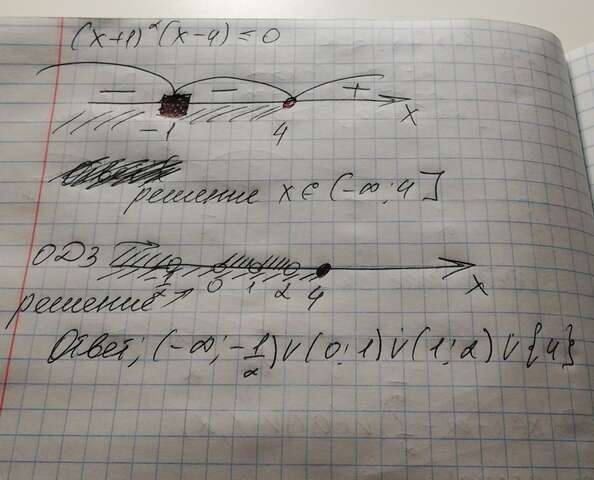 (x+1)²(x-4) ≤ 0
- - + x
-1 4
решение x ∈ (-∞; 4]
ОДЗ
0 1 2 4 x
решение
Ответ: (-∞; -1/2) ∪ (0; 1) ∪ (1; 2) ∪ {4}